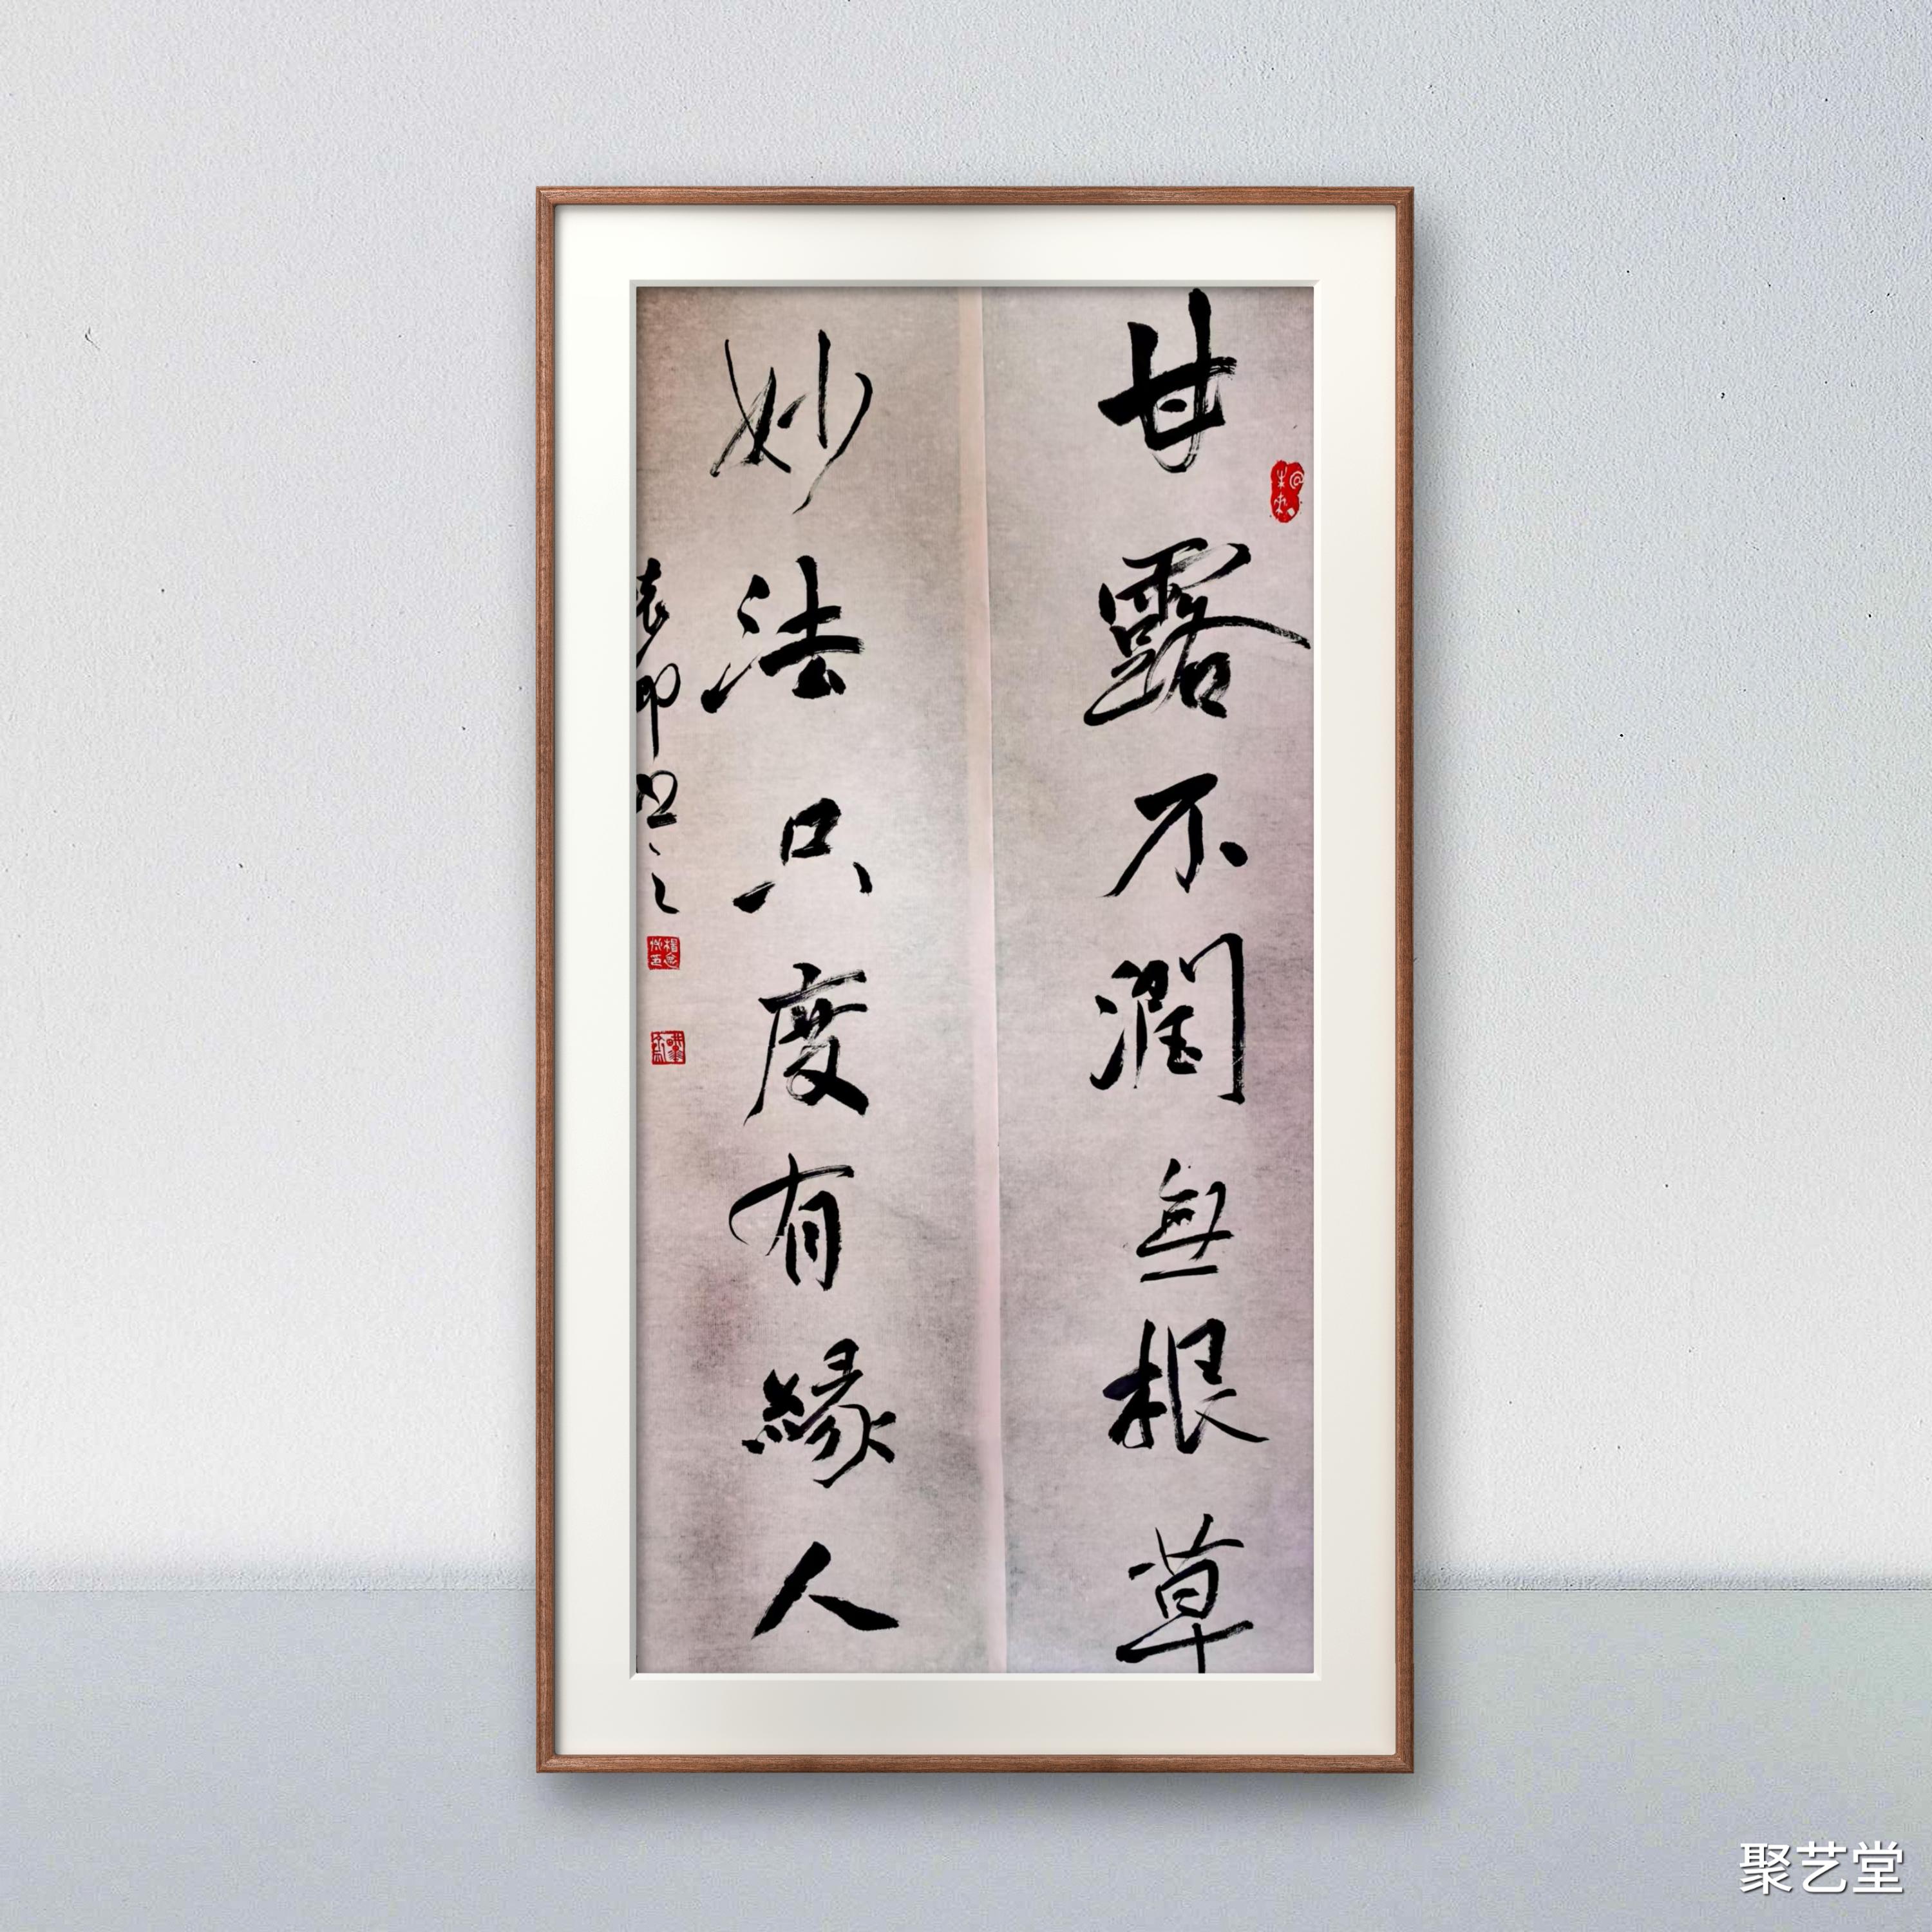 甘露不潤無根草
妙法只度有緣人
聚艺堂